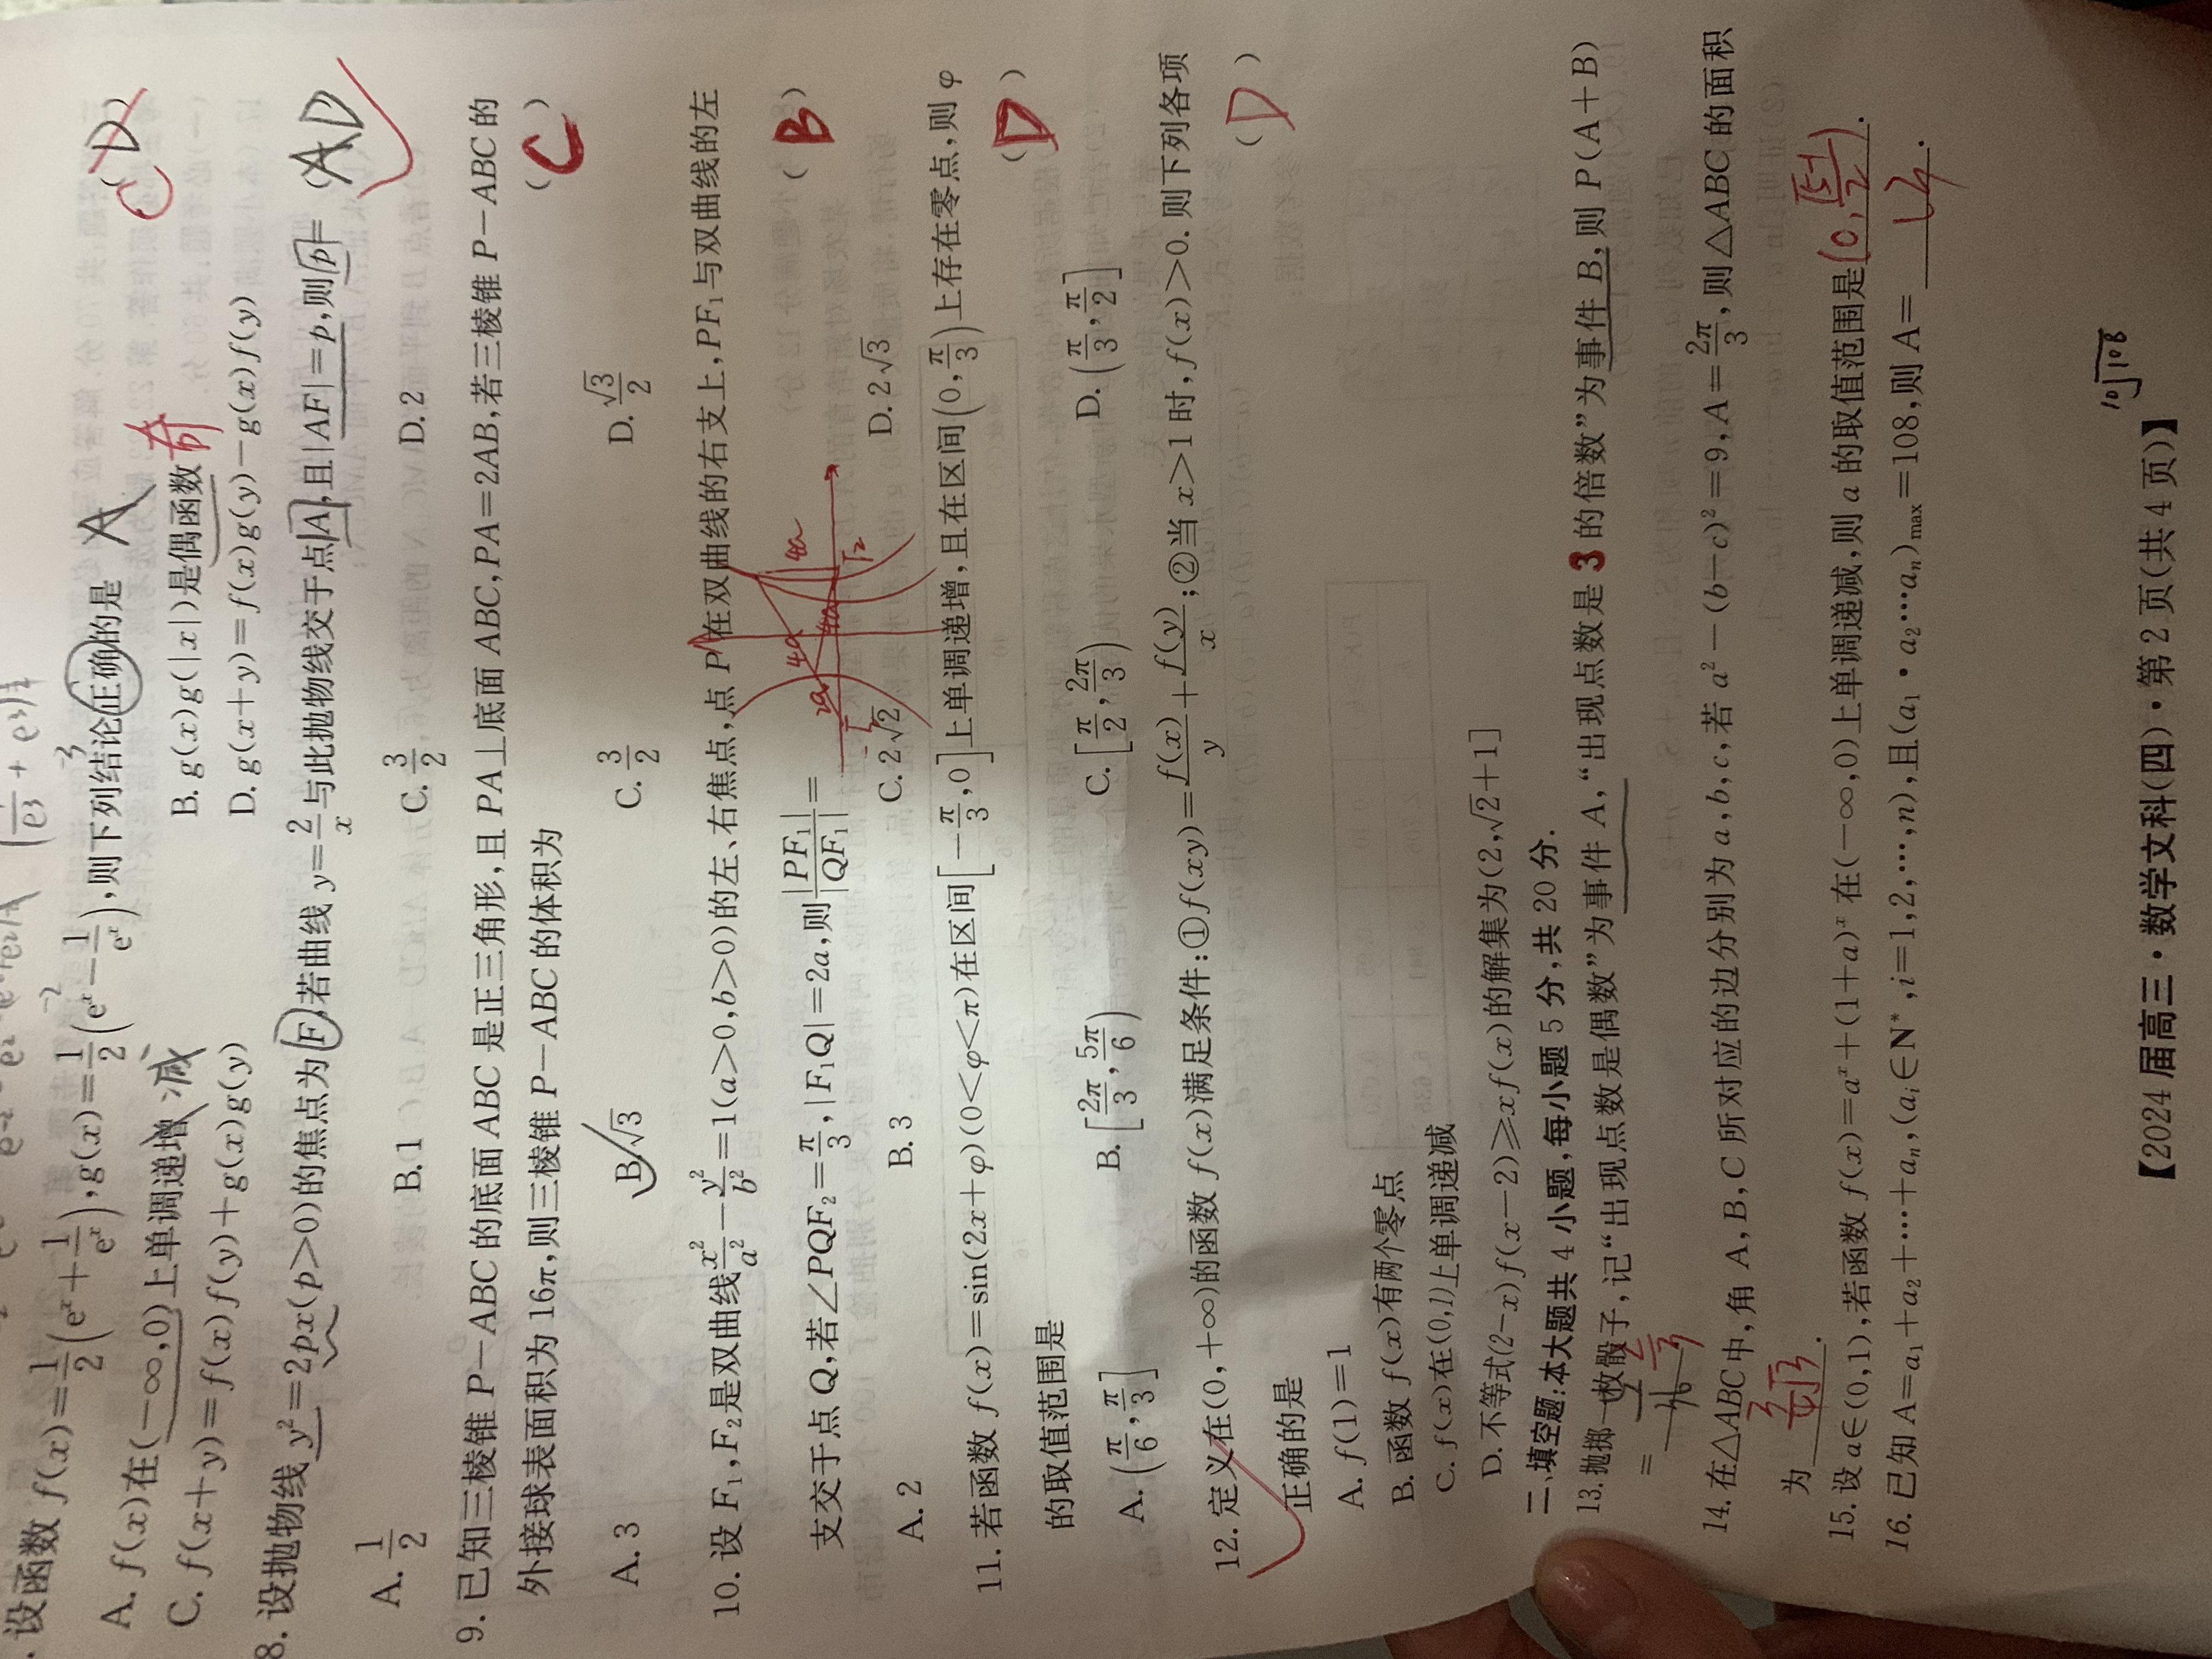 设函数 f(x)=1/2(eˣ+1/eˣ),g(x)=1/2(eˣ-1/eˣ),则下列结论正确的是 A
C D
A. f(x)在(-∞,0)上单调递增 减
B. g(x)g(|x|)是偶函数 奇
C. f(x+y)=f(x)f(y)+g(x)g(y)
D. g(x+y)=f(x)g(y)-g(x)f(y)
8. 设抛物线 y²=2px(p>0)的焦点为 F,若曲线 y=2/x 与此抛物线交于点 A,且|AF|=p,则 p=
( AD
A. 1/2 B. 1 C. 3/2 D. 2
9. 已知三棱锥 P-ABC 的底面 ABC 是正三角形,且 PA⊥底面 ABC,PA=2AB,若三棱锥 P-ABC 的
外接球表面积为 16π,则三棱锥 P-ABC 的体积为 ( C )
A. 3 B. √3 C. 3/2 D. √3/2
10. 设 F₁,F₂ 是双曲线 x²/a²-y²/b²=1(a>0,b>0)的左、右焦点,点 P 在双曲线的右支上,PF₁ 与双曲线的左
支交于点 Q,若∠PQF₂=π/3,|F₁Q|=2a,则|PF₁|/|QF₁|= ( B )
2a 4a 4a 4a
A. 2 B. 3 C. 2√2 D. 2√3
11. 若函数 f(x)=sin(2x+φ)(0<φ<π)在区间[-π/3,0]上单调递增,且在区间(0,π/3)上存在零点,则 φ
的取值范围是 ( D )
A. (π/6,π/3] B. [2π/3,5π/6) C. [π/2,2π/3) D. (π/3,π/2]
12. 定义在(0,+∞)的函数 f(x)满足条件:①f(xy)=f(x)/y+f(y)/x;②当 x>1 时,f(x)>0. 则下列各项
正确的是 ( D )
A. f(1)=1
B. 函数 f(x)有两个零点
C. f(x)在(0,1)上单调递减
D. 不等式(2-x)f(x-2)≥xf(x)的解集为(2,√2+1]
二、填空题:本大题共 4 小题,每小题 5 分,共 20 分.
13. 抛掷一枚骰子,记“出现点数是偶数”为事件 A,“出现点数是 3 的倍数”为事件 B,则 P(A+B)
= 2/3
14. 在△ABC 中,角 A,B,C 所对应的边分别为 a,b,c,若 a²-(b-c)²=9,A=2π/3,则△ABC 的面积
为 .
15. 设 a∈(0,1),若函数 f(x)=aˣ+(1+a)ˣ 在(-∞,0)上单调递减,则 a 的取值范围是(0,√5-1/2].
16. 已知 A=a₁+a₂+⋯+aₙ,(aᵢ∈N*,i=1,2,⋯,n),且(a₁·a₂⋯aₙ)max=108,则 A= 14 .
10 108
【2024 届高三·数学文科(四)·第 2 页(共 4 页)】